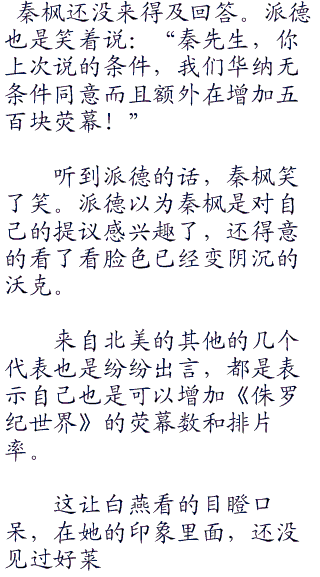 秦枫还没来得及回答。派德
也是笑着说：“秦先生，你
上次说的条件，我们华纳无
条件同意而且额外在增加五
百块荧幕！”
听到派德的话，秦枫笑
了笑。派德以为秦枫是对自
己的提议感兴趣了，还得意
的看了看脸色已经变阴沉的
沃克。
来自北美的其他的几个
代表也是纷纷出言，都是表
示自己也是可以增加《侏罗
纪世界》的荧幕数和排片
率。
这让白燕看的目瞪口
呆，在她的印象里面，还没
见过好菜